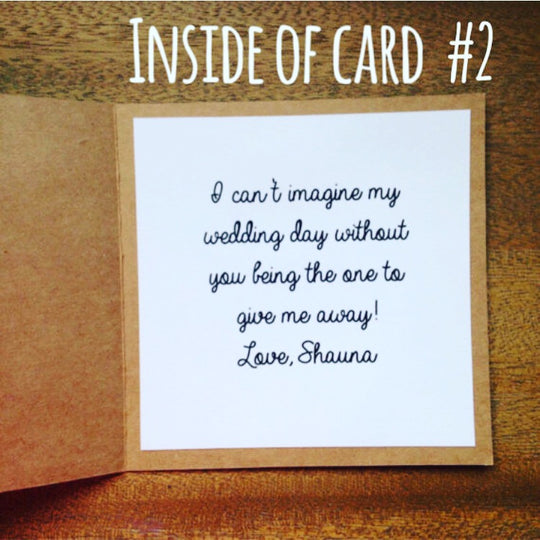 INSIDE OF CARD #2
I can't imagine my
wedding day without
you being the one to
give me away!
Love, Shauna